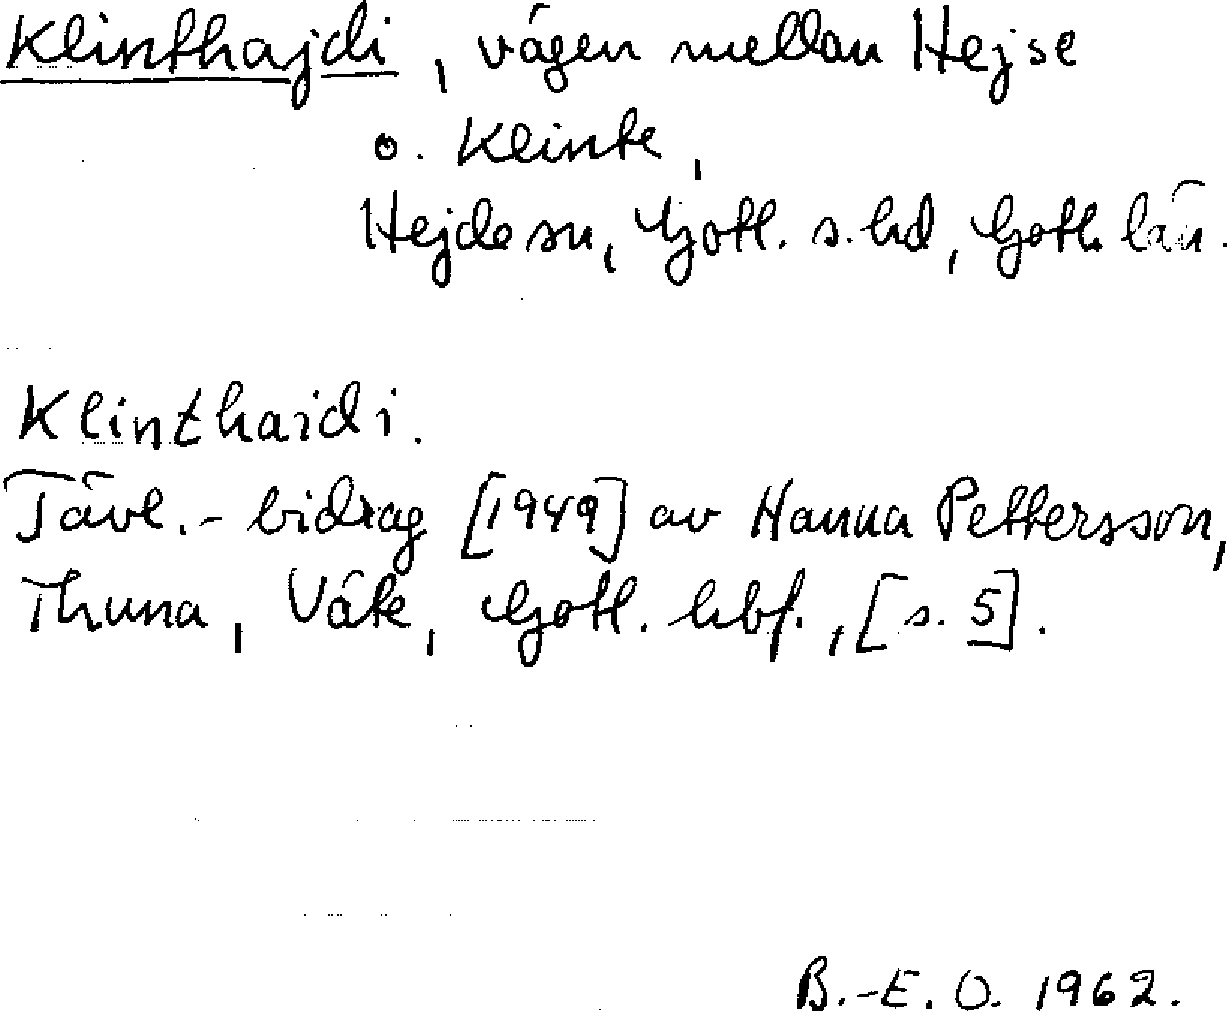 Klinthajdi, vägen mellan Hejse
o. Klinte,
Hejde sn, Gotl. s. hd, Gotl. län.
Klinthaidi.
Tävl.-bidrag [1949] av Hanna Pettersson,
Thuna, Väte, Gotl. hbf., [s. 5].
B.-E. O. 1962.